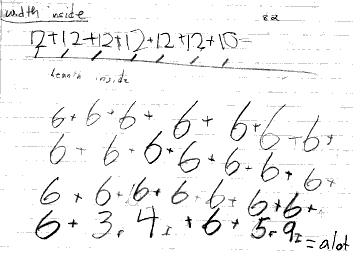 width inside
82
12+12+12+12+12+12+10
Length inside
6+6+6+ 6+ 6+6+6+
6+ 6+6+6+6+6+ 6+
6+6+6+6+6+6+6+
6+3. 4 +6+5.9 =alot